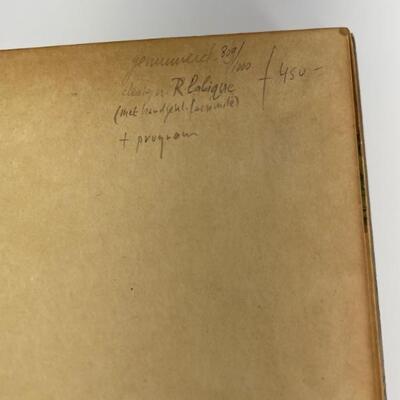 genummerd. 809/1000
design R. Lalique f 450 -
(met facsimilé)
+ program